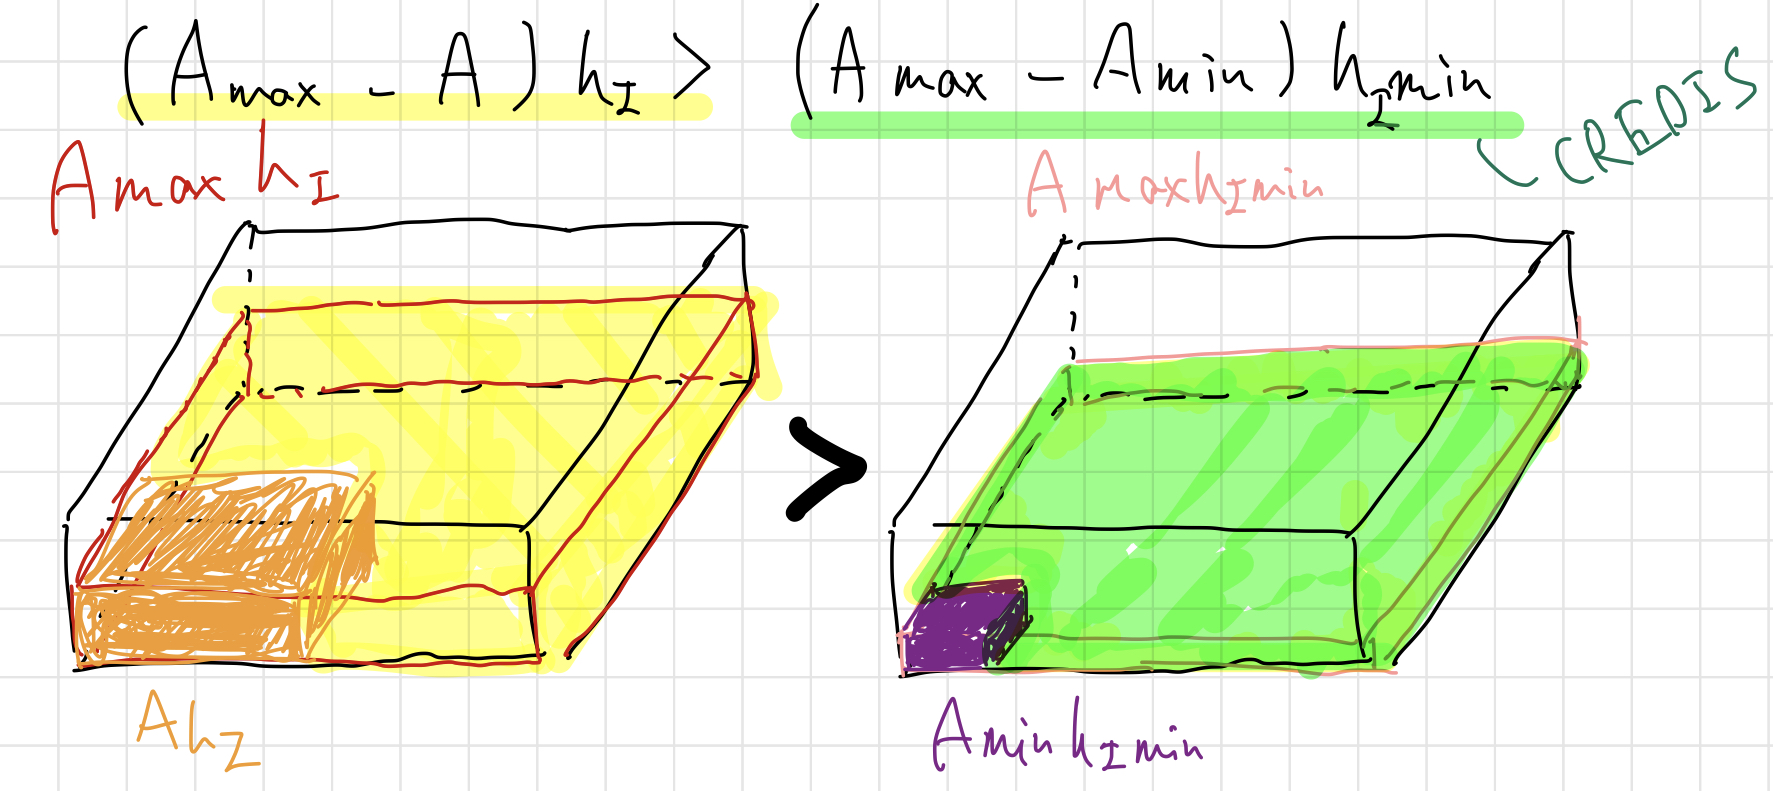 (Amax - A) hI > (Amax - Amin) hImin
CREDIS
Amax hI
AmaxhImin
>
AhI
AminhImin